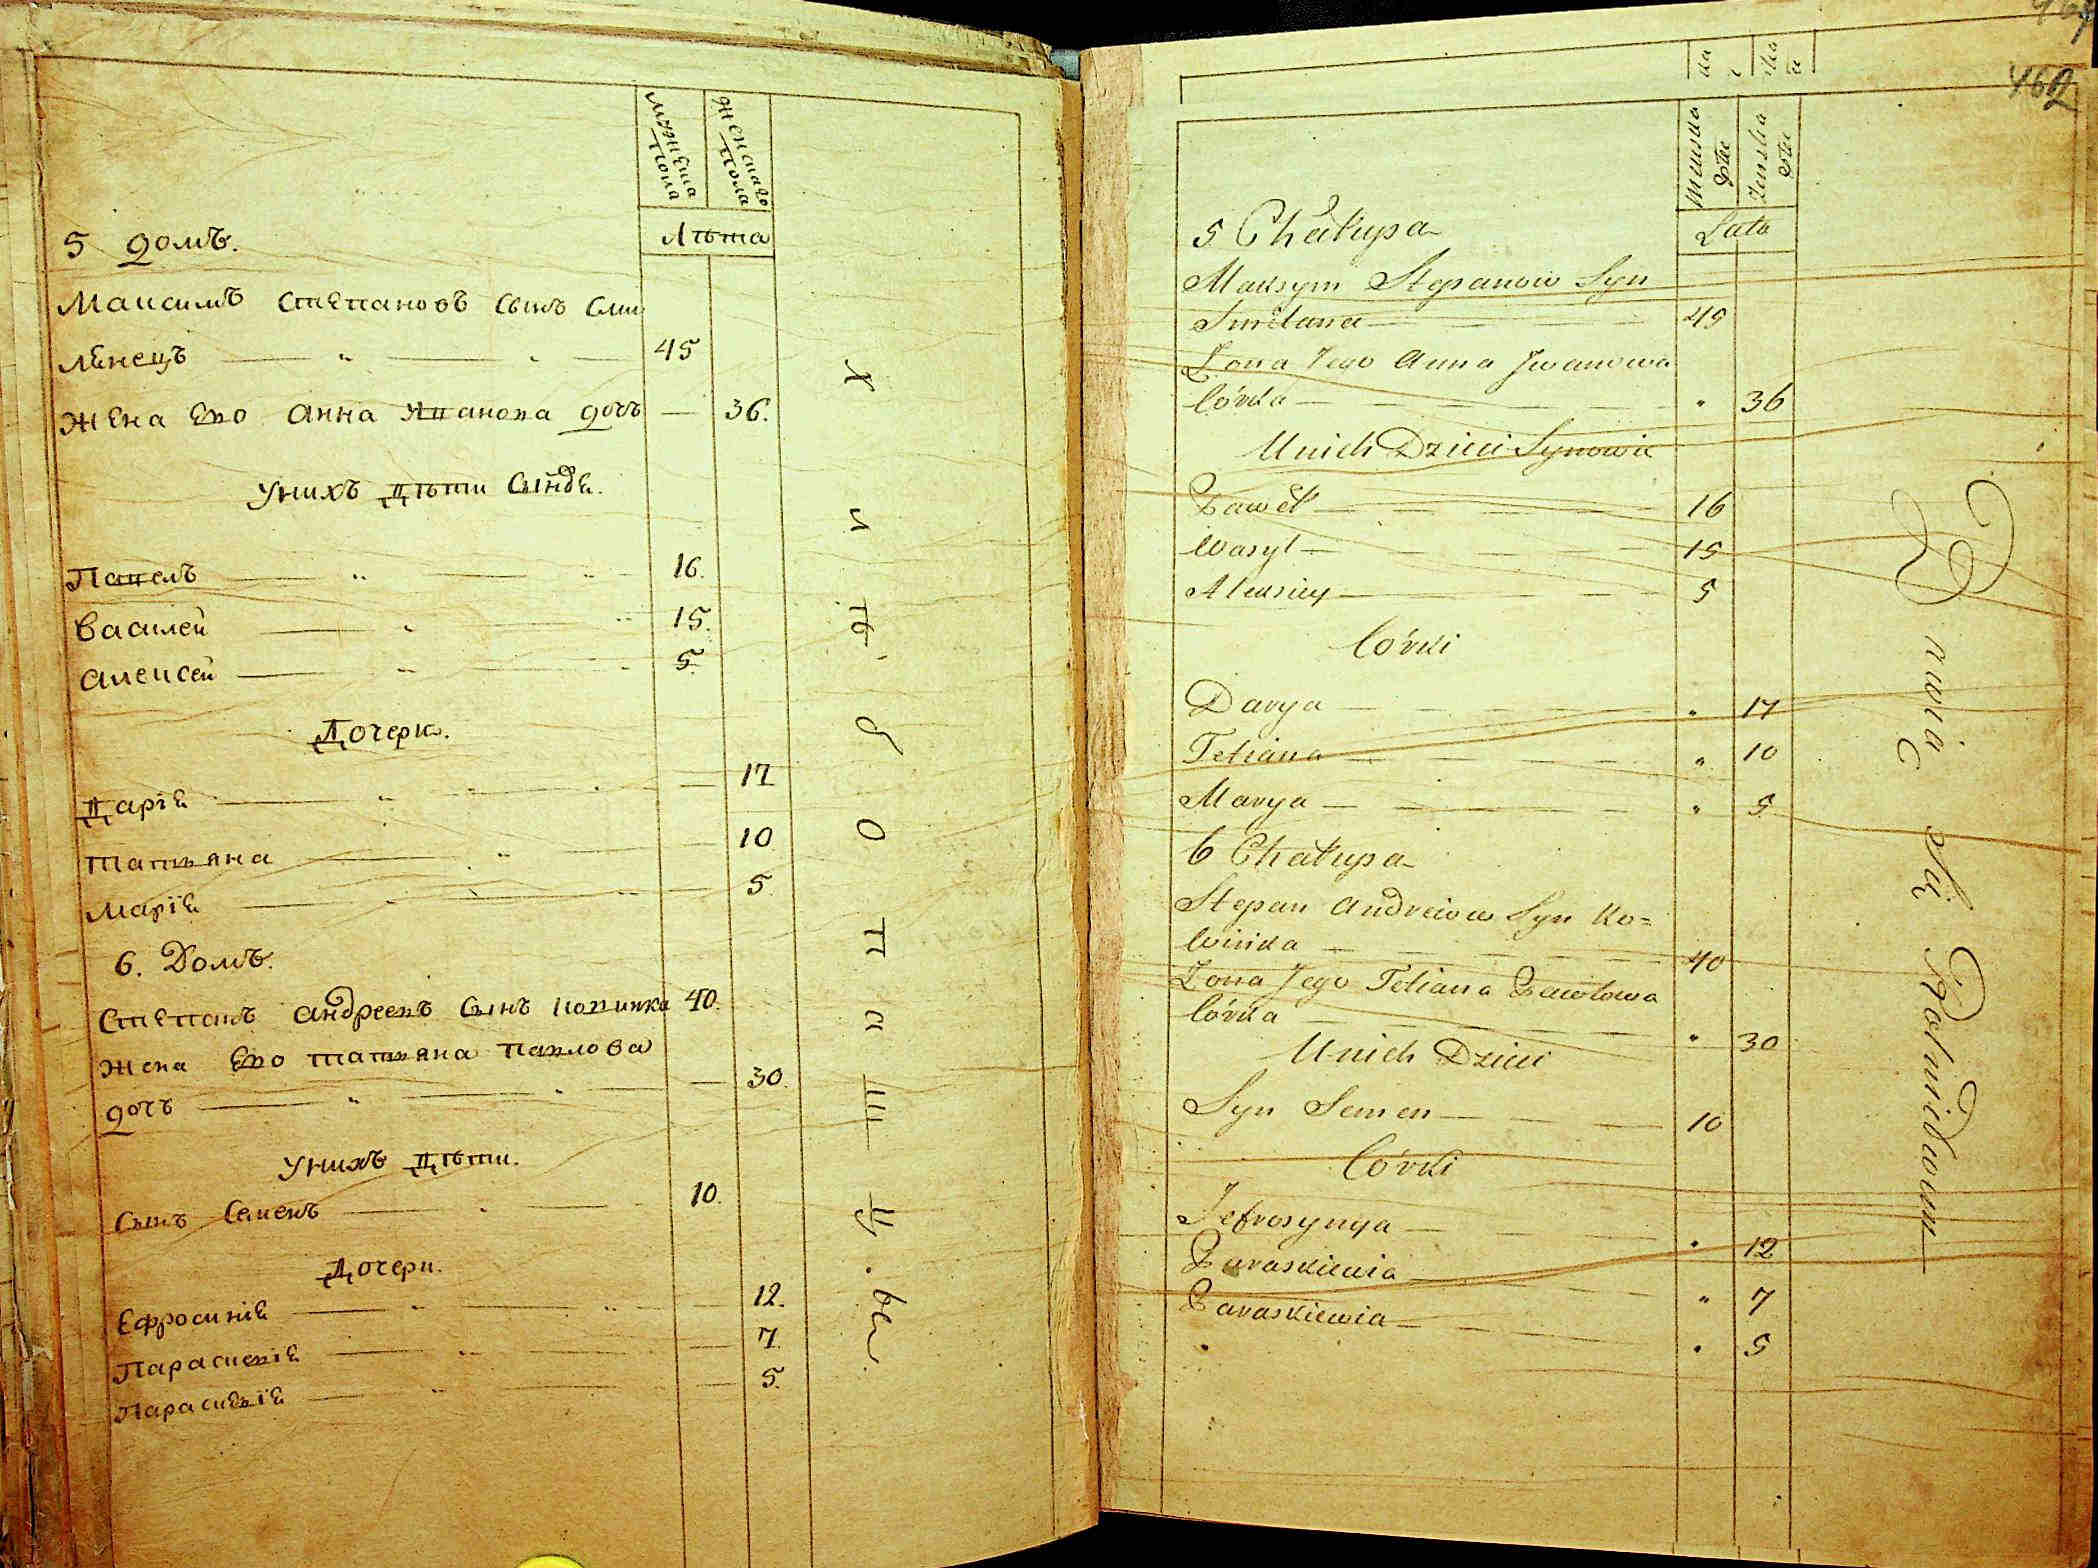 Мужеска пола
Женскаго пола
Лѣта
5 домъ.
Максимъ Степановъ сынъ Сми
45
Жена Его Анна Иванова дочь — 36.
Унихъ дѣти сынове.
Павелъ — " — 16.
Василей — " — 15.
Алексей — " — 5.
Дочери.
Даріѣ — " — 17
Татьяна — " — 10
Маріѣ — " — 5.
6. Домъ.
Степанъ Андреевъ сынъ Ковинка 40.
Жена Его Татьяна Павлова
дочъ — " — 30.
Унихъ дѣти.
Сынъ Семенъ — 10.
Дочери.
Ефросиніѣ — " — 12.
Параскевіѣ — " — 7.
Параскевіѣ — " — 5.
Хлѣбопашцы.
462
Męuska Płec
Żeńska Płec
Lata
5 Chałupa
Maksym Stepanow Syn
Smetana — 45
Żona Jego Anna Iwanowa
Córka — " 36
Unich Dzieci Synowie
Paweł — 16
Wasyl — 15
Alexiey — 5
Córki
Darya — " 17
Tetiana — " 10
Marya — " 5
6 Chałupa
Stepan Andreiow Syn Ko=
winka — 40
Żona Jego Tetiana Pawłowa
Córka — " 30
Unich Dzieci
Syn Semen — 10
Córki
Jefrosynya — " 12
Paraskiewia — " 7
Paraskiewia — " 5
Bawią się Rolnictwem